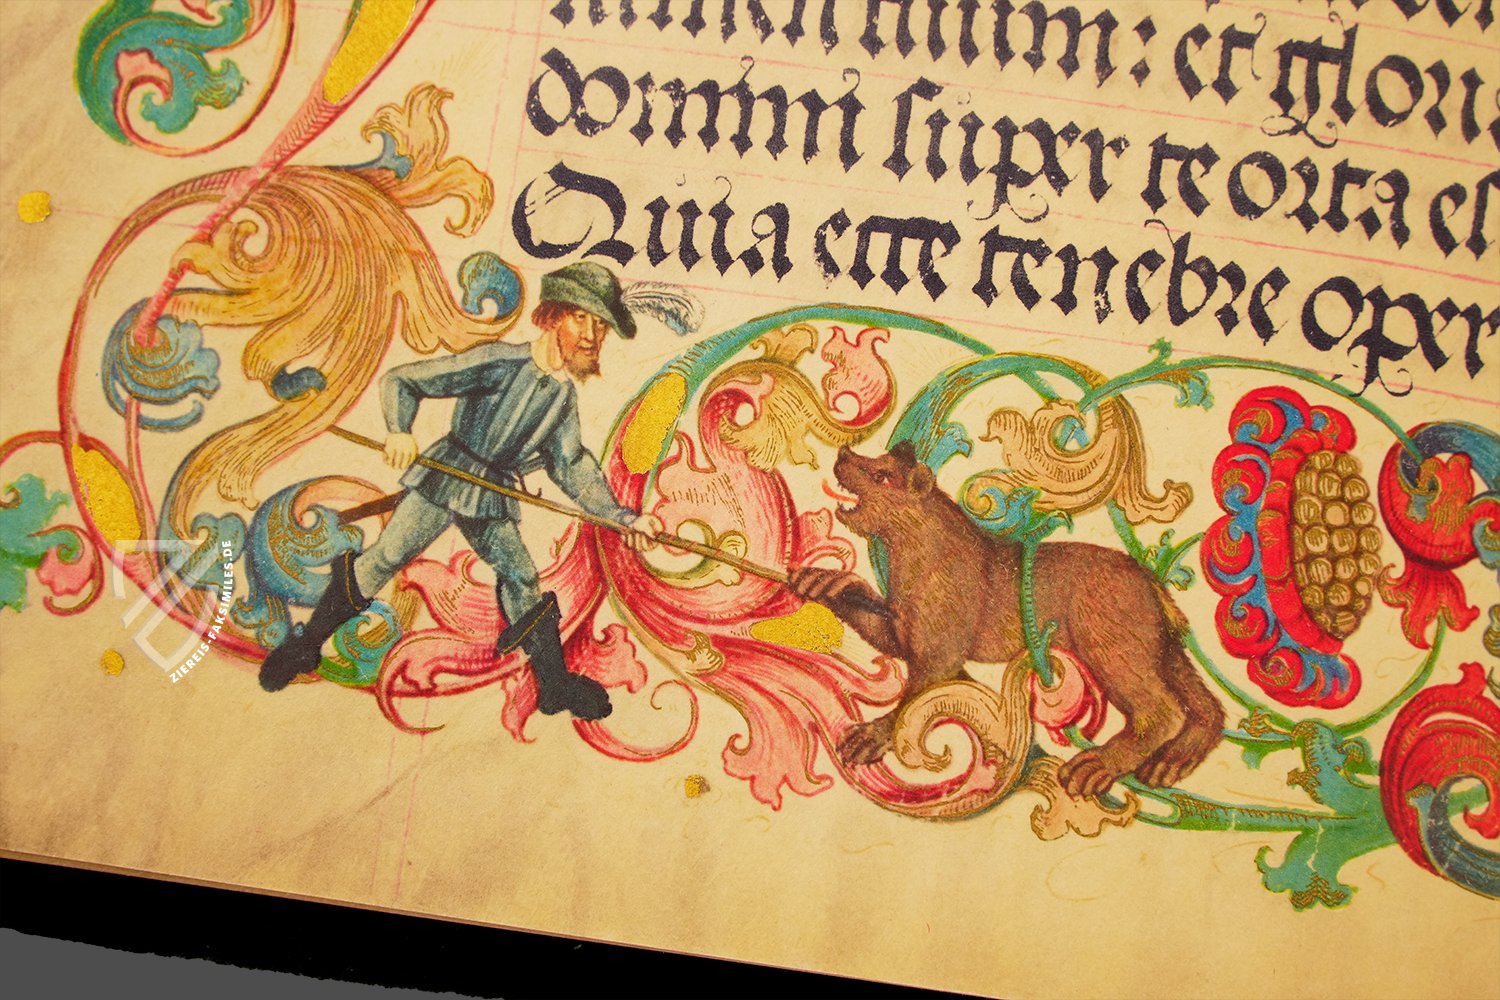 lumen tuum: et glori
domini super te orta es
Quia ecce tenebre oper
ZIEREIS-FAKSIMILES.DE